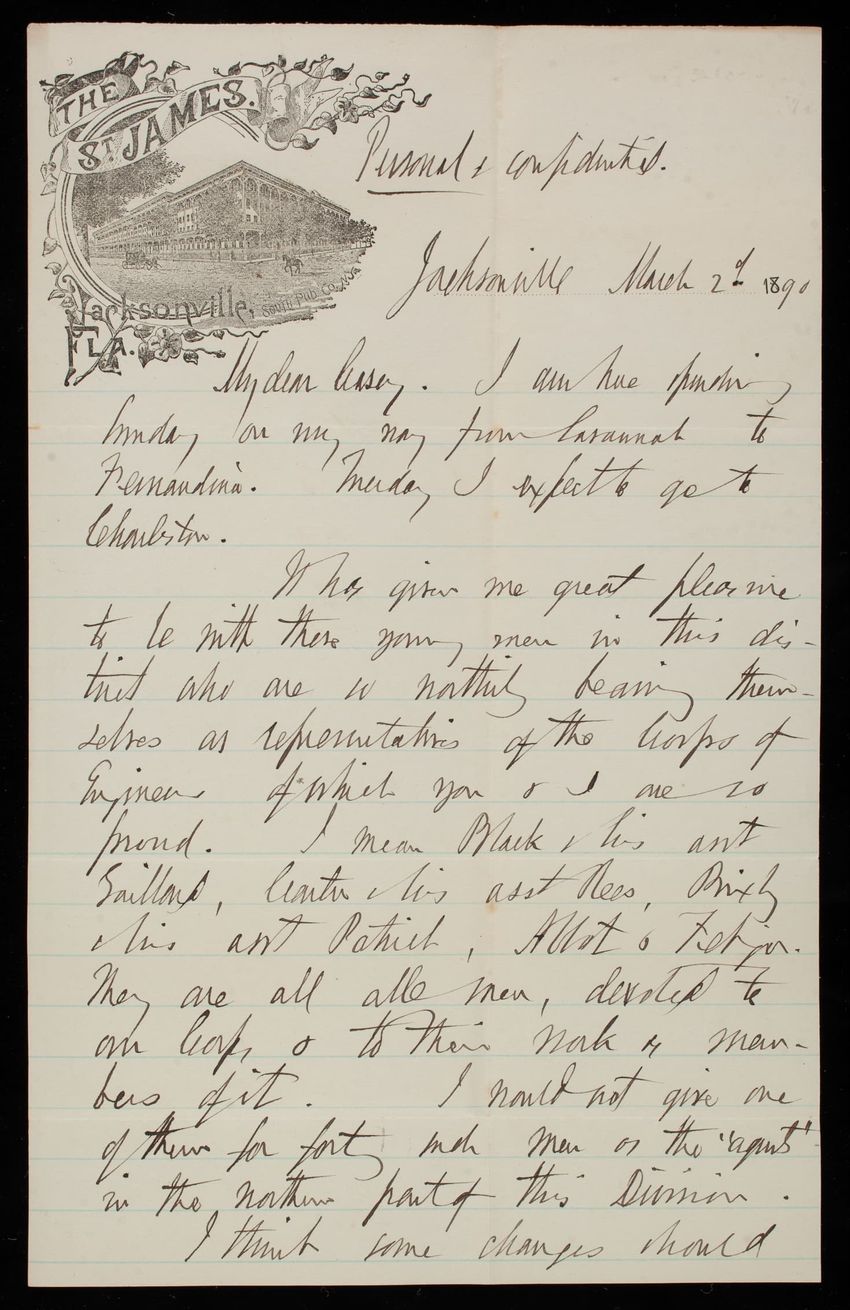 THE
ST. JAMES.
Jacksonville,
South Pub. Co. N.Y.
FLA.
Personal & confidential.
Jacksonville March 2d 1890
My dear Casey. I am here spending
Sunday on my way from Savannah to
Fernandina. Tuesday I expect to go to
Charleston.
It has given me great pleasure
to be with these young men in this dis-
trict who are so worthily bearing them-
selves as representatives of the Corps of
Engineers of which you & I are so
proud. I mean Black & his asst
Gaillard, Carter & his asst Rees, Bixby
& his asst Patrick, Abbot &
They are all able men, devoted to
our Corps & to their work as mem-
bers of it. I would not give one
of them for forty such men as the "agents"
in the northern part of this Division.
I think some changes should